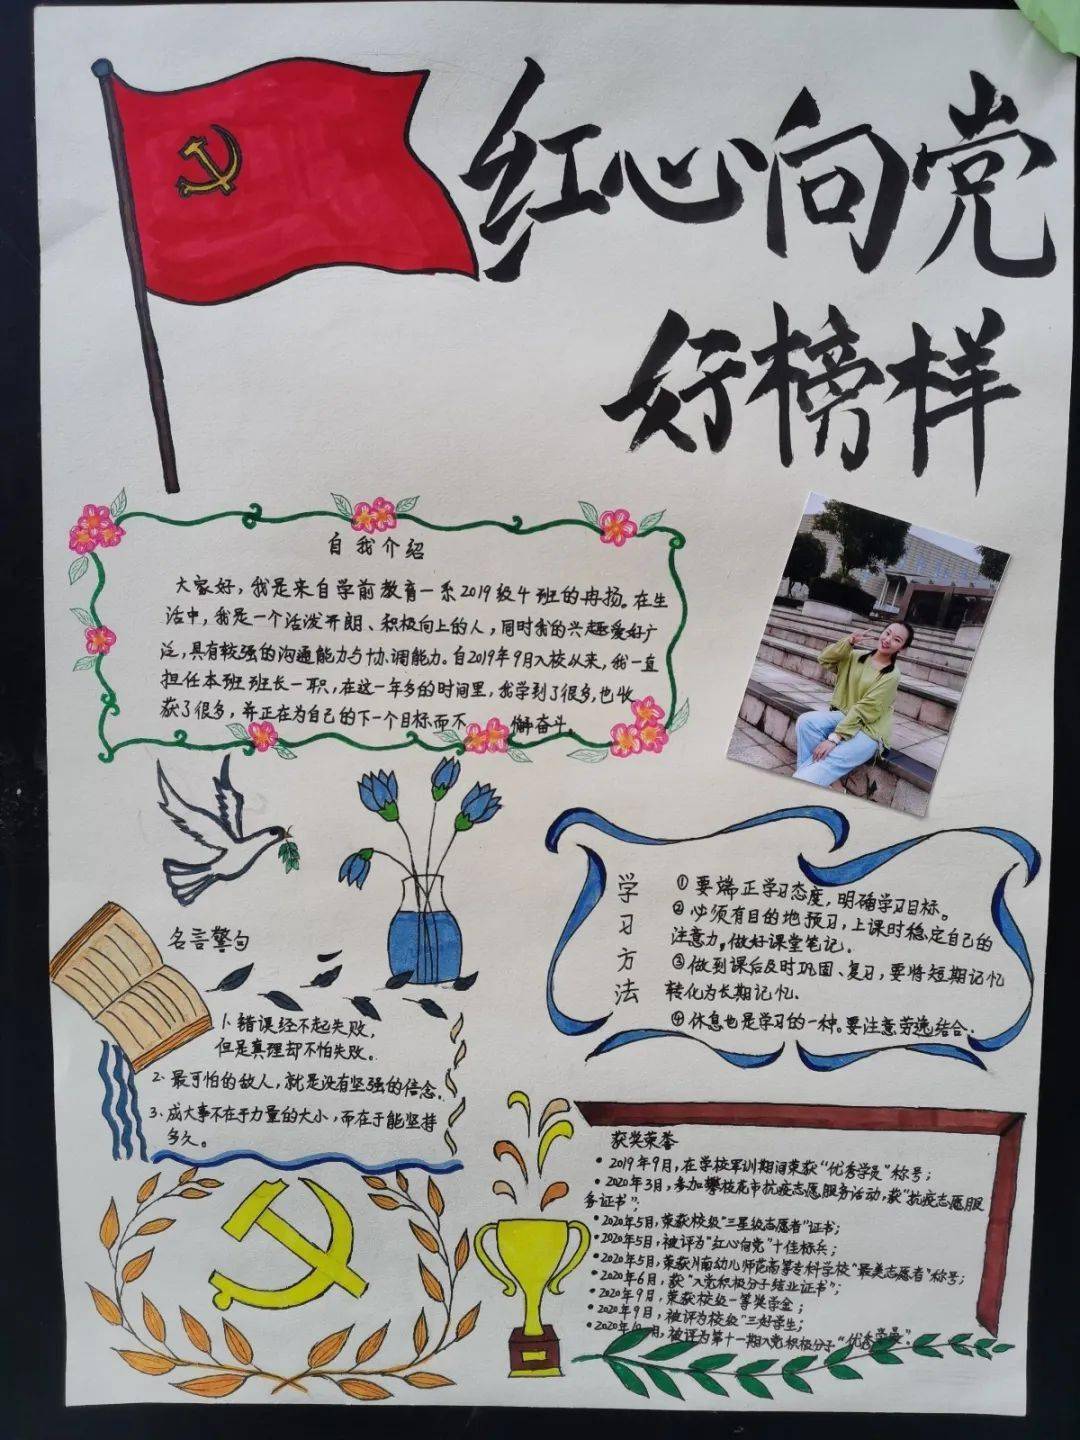 红心向党
好榜样
自我介绍
大家好,我是来自学前教育一系2019级4班的冉扬。在生
活中,我是一个活泼开朗、积极向上的人,同时我的兴趣爱好广
泛,具有较强的沟通能力与协调能力。自2019年9月入校以来,我一直
担任本班班长一职,在这一年多的时间里,我学到了很多,也收
获了很多,并正在为自己的下一个目标而不 懈奋斗。
名言警句
1. 错误经不起失败,
但是真理却不怕失败。
2. 最可怕的敌人,就是没有坚强的信念。
3. 成大事不在于力量的大小,而在于能坚持
多久。
学习方法
①要端正学习态度,明确学习目标。
②必须有目的地预习,上课时稳定自己的
注意力,做好课堂笔记。
③做到课后及时巩固、复习,要将短期记忆
转化为长期记忆.
④休息也是学习的一种.要注意劳逸结合.
获奖荣誉
•2019年9月,在学校军训期间荣获“优秀学员”称号;
•2020年3月,参加攀枝花市抗疫志愿服务活动,获“抗疫志愿服
务证书”;
•2020年5月,荣获校级“三星级志愿者”证书;
•2020年5月,被评为“红心向党”十佳标兵;
•2020年5月,荣获川南幼儿师范高等专科学校“最美志愿者”称号;
•2020年6月,获“入党积极分子结业证书”;
•2020年9月,荣获校级一等奖学金;
•2020年9月,被评为校级“三好学生;
•2020年 月,被评为第十一期入党积极分子“优秀学员”.